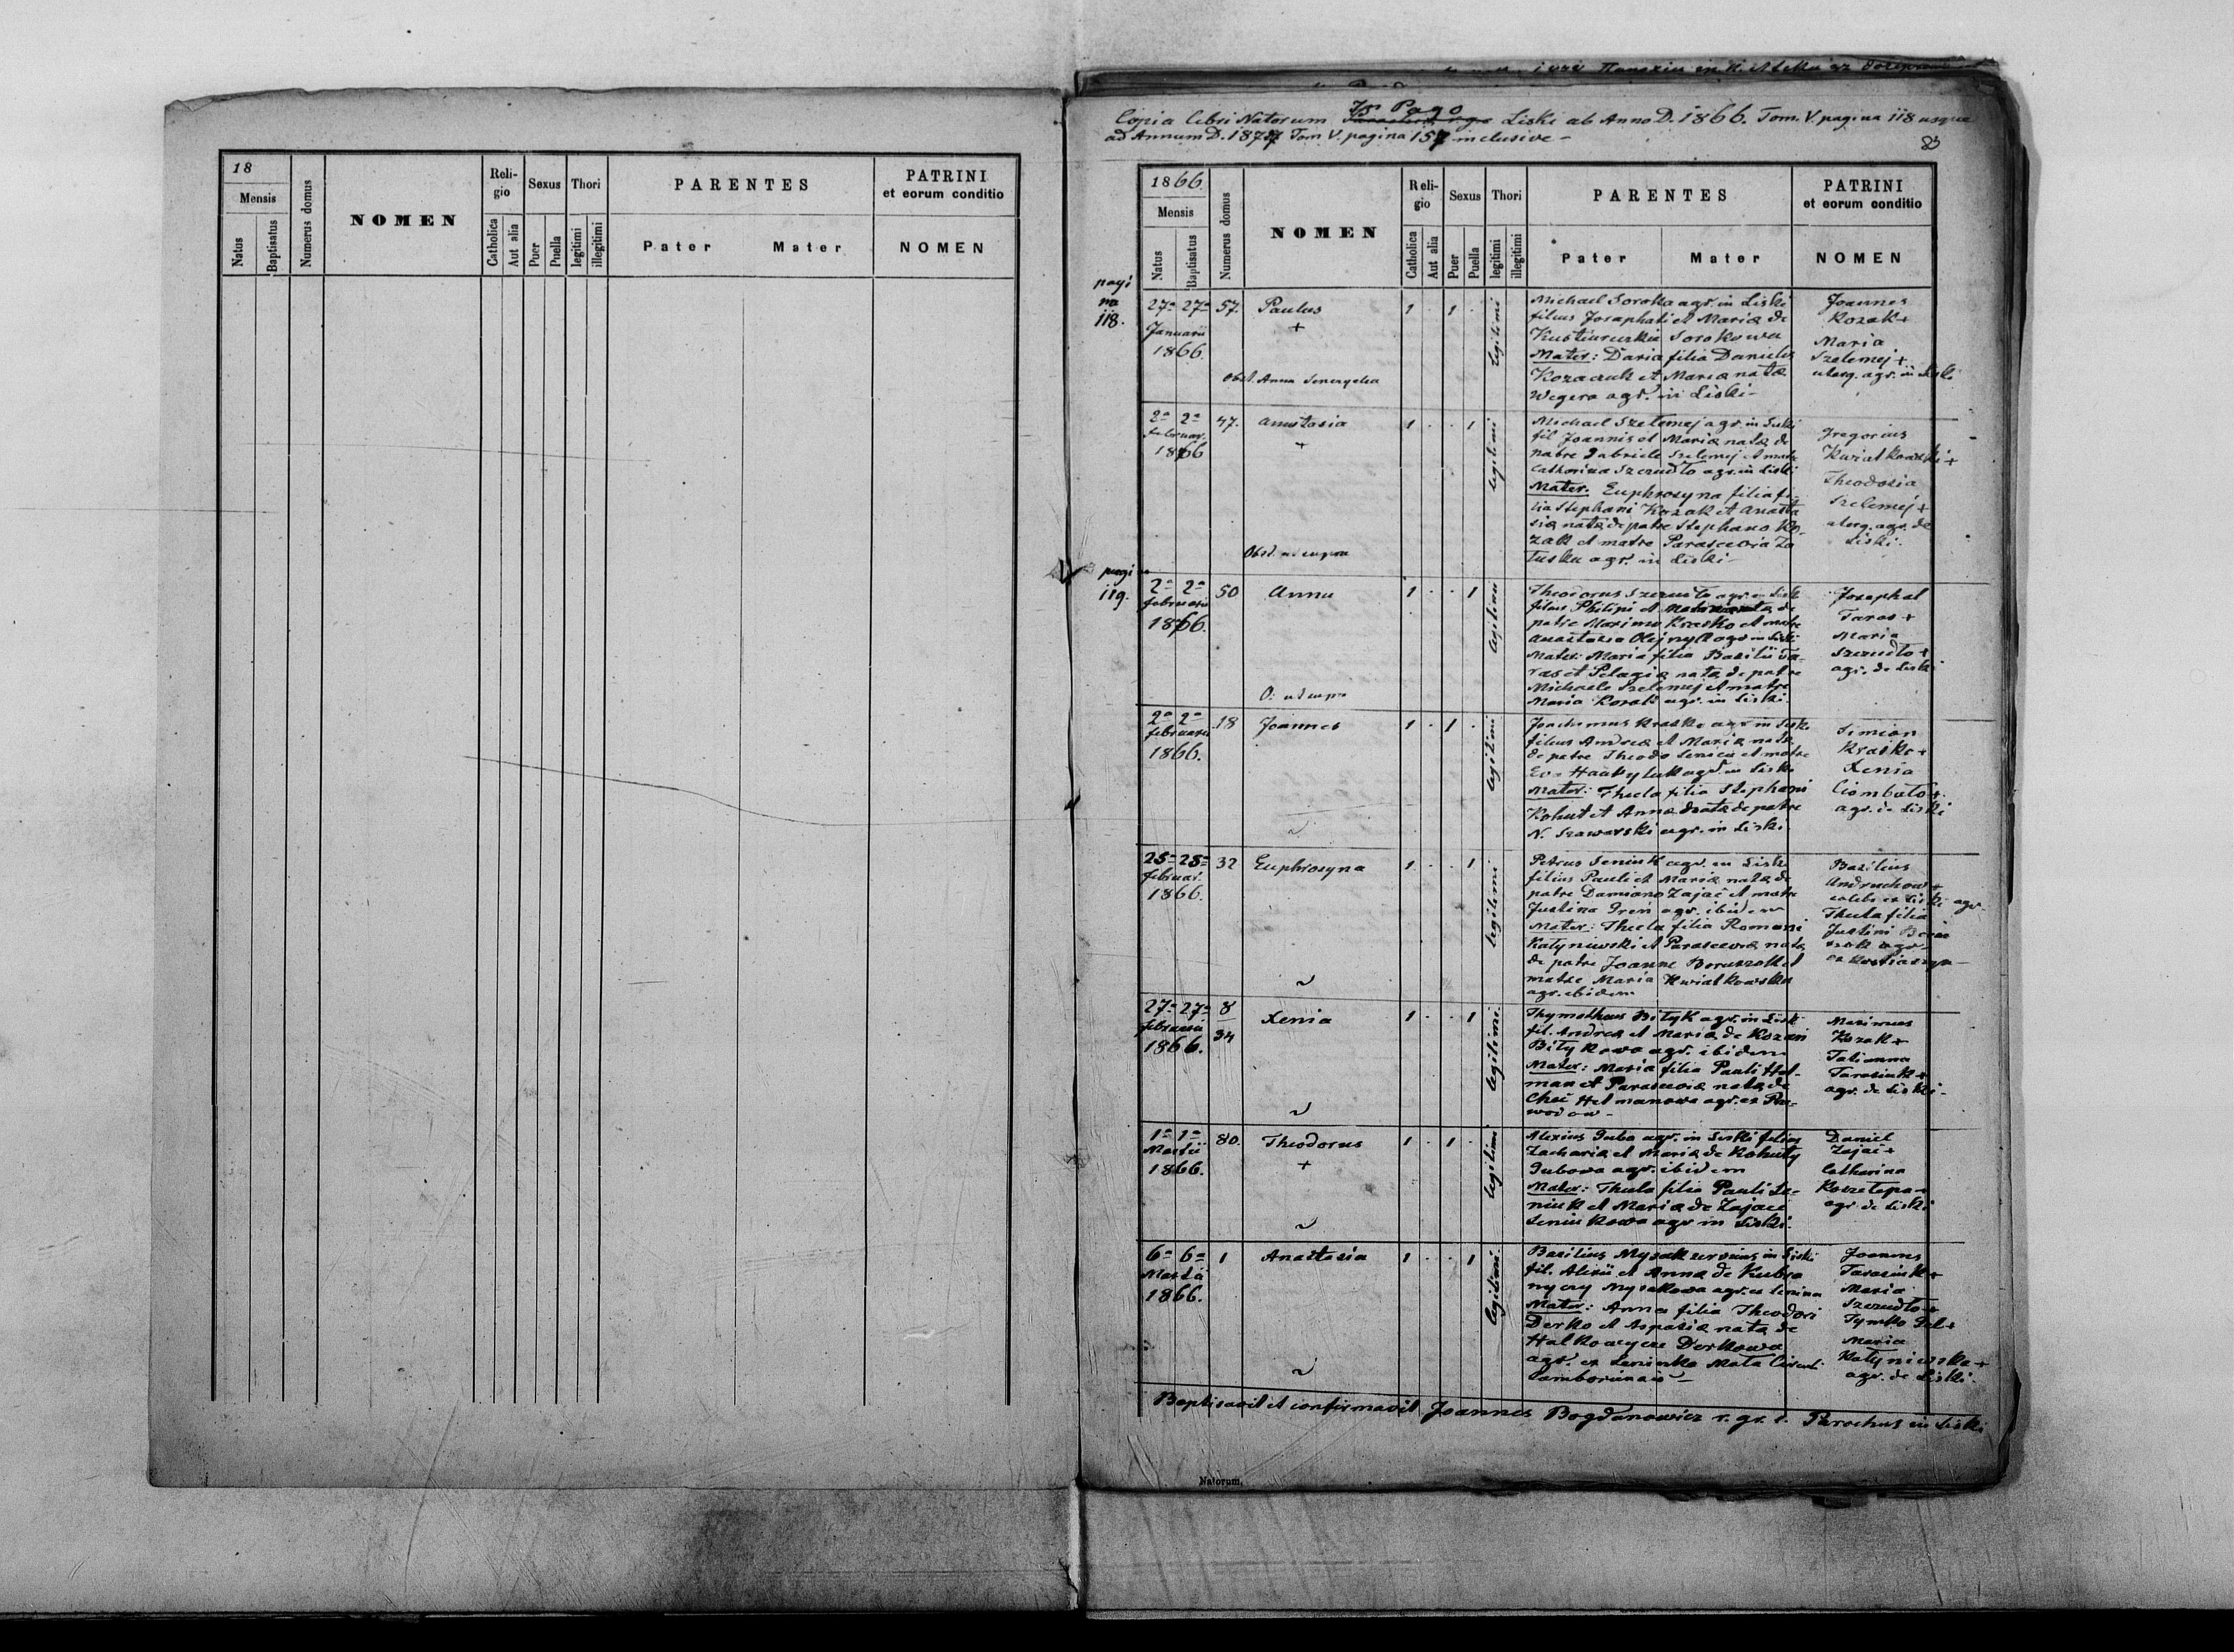 18
Mensis
Natus
Baptisatus
Numerus domus
NOMEN
Religio
Catholica
Aut alia
Sexus
Puer
Puella
Thori
legitimi
illegitimi
PARENTES
Pater Mater
PATRINI
et eorum conditio
NOMEN
Copia libri Natorum In Pago Liski ab Anno D. 1866. Tom. V. pagina 118 usque
ad Annum D. 1877 Tom V. pagina 157 inclusive -
83
1866
Mensis
Natus
Baptisatus
Numerus domus
NOMEN
Religio
Catholica
Aut alia
Sexus
Puer
Puella
Thori
legitimi
illegitimi
PARENTES
Pater Mater
PATRINI
et eorum conditio
NOMEN
pagi
na
118.
27a 27a 57. Paulus 1 . 1 . legitimi
Januarii +
1866.
Obst. Anna
Michael Soroka agr. in Liski
filius Josaphati et Maria de
Sorokowa
Mater: Daria filia Danielis
Kozaczuk et Maria nata
Wegera agr. in Liski -
Joannes
Kozak +
Maria
Szelemej +
uterq. agr. in Liski
2a 2a 47. Anastasia 1 . . 1 legitimi
Februar. +
1866
Obst. ut supra
Michael Szelemej agr. in Liski
fil Joannis et Maria nata de
patre Gabriele Szelemej et matre
Catharina Szczudło agr. in Liski
Mater. Euphrosyna filia fi-
lia Stephani Kozak et Anasta
sia nata de patre Stephano Ko-
zak et matre Parascevia Za
łuska agr. in Liski -
Gregorius
Kwiatkowski +
Theodosia
Szelemej +
uterq. agr. de
Liski.
pagi
119.
2a 2a 50 Anna 1 . . 1 legitimi
Februarii
1866.
O. ut supra
Theodorus Szczudło agr. in Liski
filius Philipi et nata de
patre Maximo Krasko et matre
Anastasia Olejnyk agr in Liski
Mater: Maria filia Basilii Ta-
ras et Pelagia nata de patre
Michaele Szelemej et matre
Maria Kozak agr. in Liski.
Josephat
Taras +
Maria
Szczudło +
agr. de Liski
2a 2a 18 Joannes 1 . 1 . legitimi
Februarii
1866.
Joachimus Krasko agr in Liski
filius Andrea et Maria nata
de patre Theodo Seniu et matre
Eva agr. in Liski
Mater: Thecla filia Stephani
Kohut et Anna nata de patre
N. Szawarski agr. in Liski.
Simeon
Krasko +
Xenia
Ciombało +
agr. de Liski
25a 25a 32 Euphrosyna 1 . . 1 legitimi
Februar.
1866.
Petrus Seniuk agr. in Liski
filius Pauli et Maria nata de
patre Damiano Zajac et matre
Justina Gren agr. ibidem
Mater: Thecla filia Romani
Katyniewski et Parascevia nata
de patre Joanne Boruszak et
matre Maria Kwiatkowska
agr. ibidem
Basilius
Andruchow +
celebs ex Liski agr.
Thecla filia
Justini
agr -
ex
27a 27a 8 Xenia 1 . . 1 legitimi
Februarii 34
1866.
Thymotheus Bityk agr. in Liski
fil. Andrea et Maria de Kozan
Bitykowa agr. ibidem
Mater: Maria filia Pauli Hel-
man et Parascevia nata de
Choc Helmanowa agr. ex Prze-
wodow -
Maximus
Kozak +
Tatianna
Tarasiuk +
agr. de Liski -
1a 1a 80. Theodorus 1 . 1 . legitimi
Martii +
1866.
Alexius Guba agr. in Liski filius
Zacharia et Maria de Kohuty
Gubowa agr. ibidem
Mater: Thecla filia Pauli Se-
niuk et Maria de Zajace
Seniukowa agr in Liski.
Daniel
Zajac +
Catharina
Koszełapa -
agr de Liski
6a 6a 1 Anastasia 1 . . 1 legitimi
Martii
1866.
Basilius Mysak servus in Liski
fil. Alexii et Anna de Kubra
nyczy Mysakowa agr. ex Lenina
Mater: Anna filia Theodori
Derko et Aspasia nata de
Derkowa
agr. ex Leninka Mała Circuli
Samboriensis -
Joannes
Tarasiuk +
Maria
Szczudło +
Tymko Gel +
Maria
Katyniewska +
agr. de Liski.
Baptisavit et confirmavit Joannes Bogdanowicz r. gr. c. Parochus in Liski
Natorum.